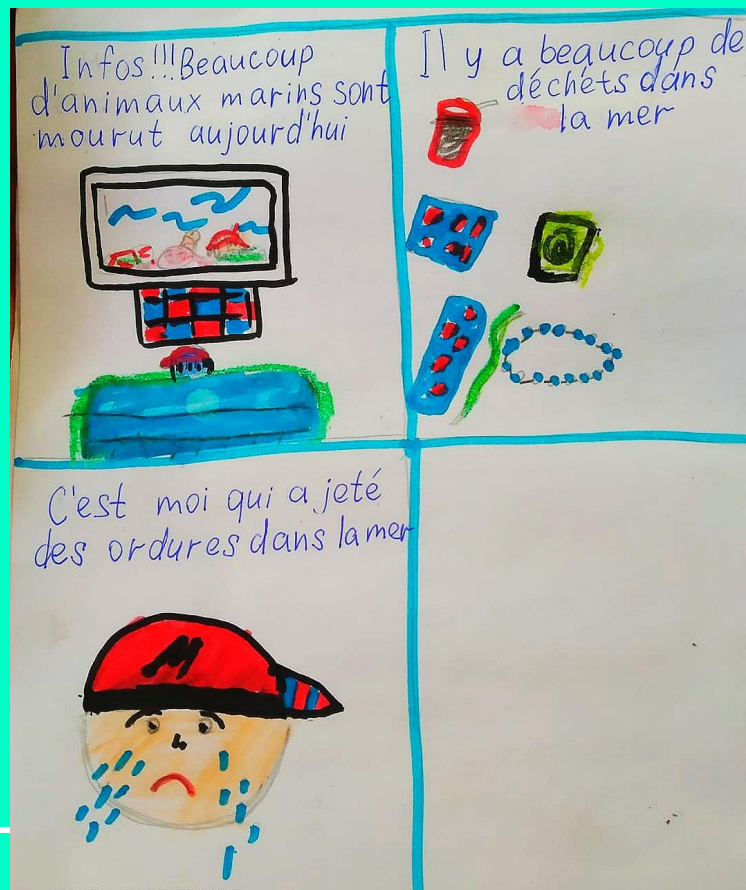 Infos!!!Beaucoup
d'animaux marins sont
mourut aujourd'hui
Il y a beaucoup de
déchets dans
la mer
C'est moi qui a jeté
des ordures dans la mer
M